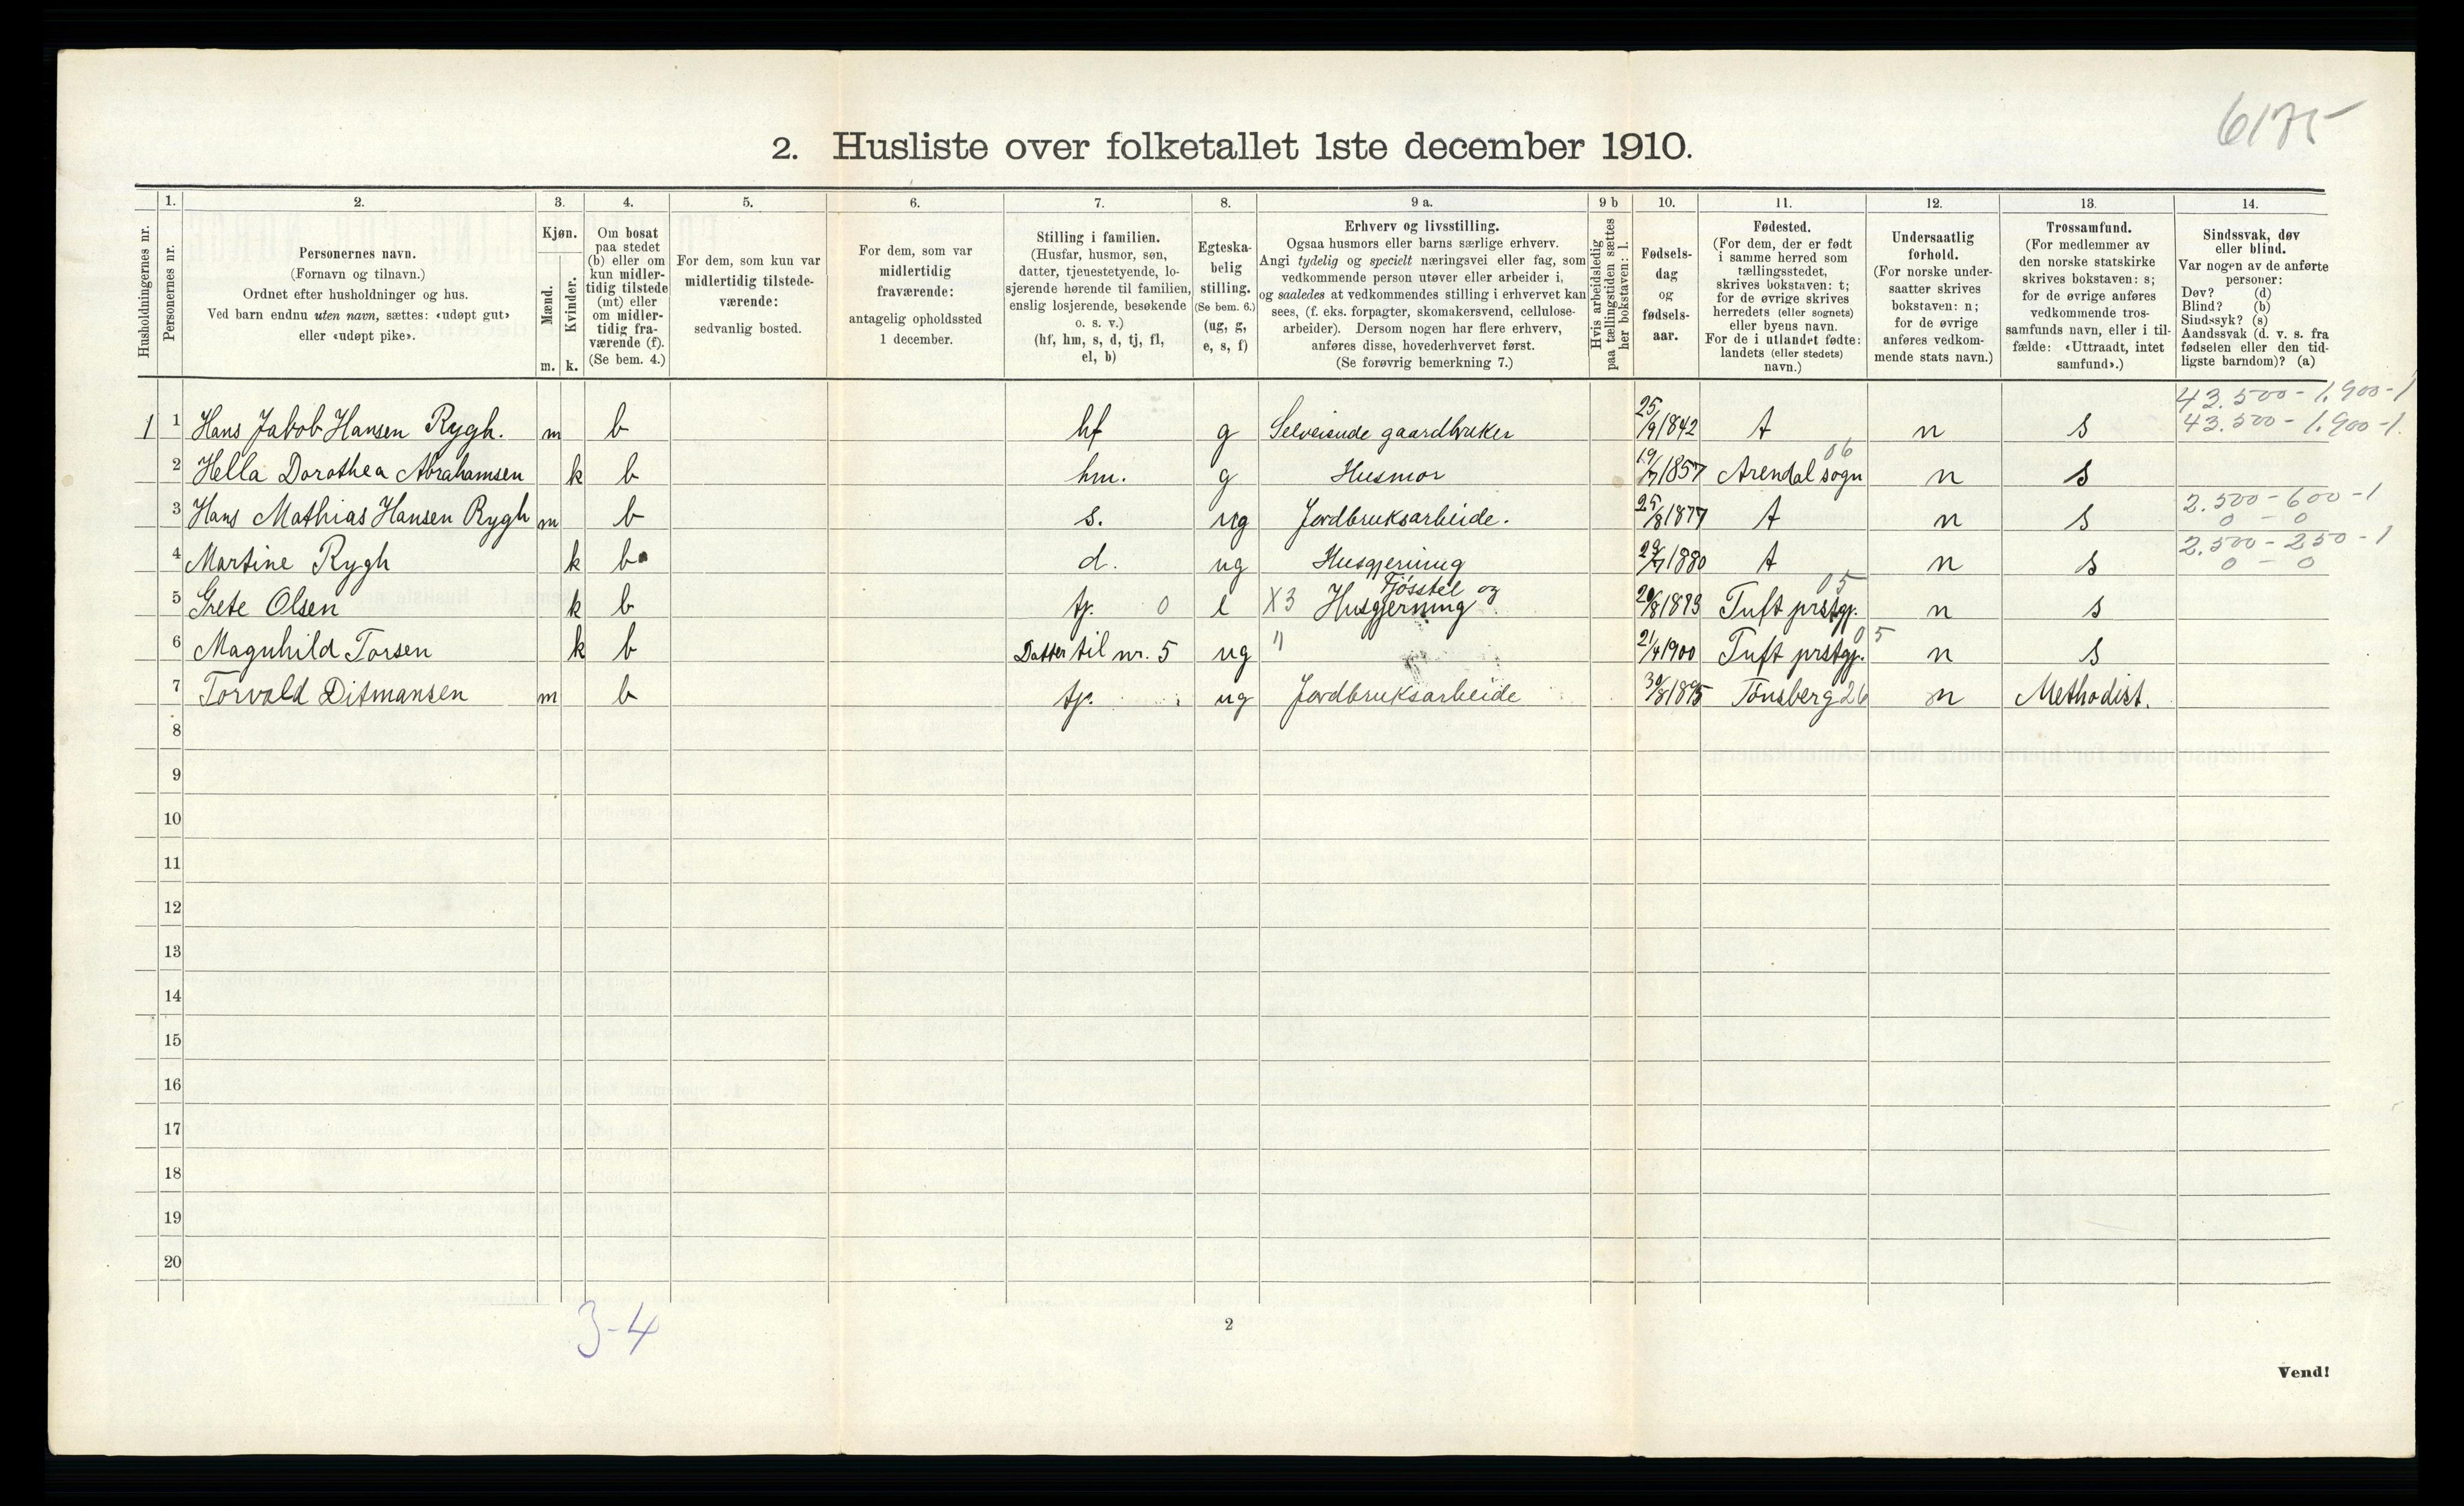 6175
2. Husliste over folketallet 1ste december 1910.
Husholdningernes nr.
1.
Personernes nr.
2.
Personernes navn.
(Fornavn og tilnavn.)
Ordnet efter husholdninger og hus.
Ved barn endnu uten navn, sættes: «udøpt gut»
eller «udøpt pike».
3.
Kjøn.
Mænd.
Kvinder.
m. k.
4.
Om bosat
paa stedet
(b) eller om
kun midler-
tidig tilstede
(mt) eller
om midler-
tidig fra-
værende (f).
(Se bem. 4.)
5.
For dem, som kun var
midlertidig tilstede-
værende:
sedvanlig bosted.
6.
For dem, som var
midlertidig
fraværende:
antagelig opholdssted
1 december.
7.
Stilling i familien.
(Husfar, husmor, søn,
datter, tjenestetyende, lo-
sjerende hørende til familien,
enslig losjerende, besøkende
o. s. v.)
(hf, hm, s, d, tj, fl,
el, b)
8.
Egteska-
belig
stilling.
(Se bem. 6.)
(ug, g,
e, s, f)
9 a.
Erhverv og livsstilling.
Ogsaa husmors eller barns særlige erhverv.
Angi tydelig og specielt næringsvei eller fag, som
vedkommende person utøver eller arbeider i,
og saaledes at vedkommendes stilling i erhvervet kan
sees, (f. eks. forpagter, skomakersvend, cellulose-
arbeider). Dersom nogen har flere erhverv,
anføres disse, hovederhvervet først.
(Se forøvrig bemerkning 7.)
9 b
Hvis arbeidsledig
paa tællingstiden sættes
her bokstaven: l.
10.
Fødsels-
dag
og
fødsels-
aar.
11.
Fødested.
(For dem, der er født
i samme herred som
tællingsstedet,
skrives bokstaven: t;
for de øvrige skrives
herredets (eller sognets)
eller byens navn.
For de i utlandet fødte:
landets (eller stedets)
navn.)
12.
Undersaatlig
forhold.
(For norske under-
saatter skrives
bokstaven: n;
for de øvrige
anføres vedkom-
mende stats navn.)
13.
Trossamfund.
(For medlemmer av
den norske statskirke
skrives bokstaven: s;
for de øvrige anføres
vedkommende tros-
samfunds navn, eller i til-
fælde: «Uttraadt, intet
samfund».)
14.
Sindssvak, døv
eller blind.
Var nogen av de anførte
personer:
Døv? (d)
Blind? (b)
Sindssyk? (s)
Aandssvak (d. v. s. fra
fødselen eller den tid-
ligste barndom)? (a)
43.500 - 1.900 - 1
1 1 Hans Jakob Hansen Rygh. m b hf g Selveiende gaardbruker 25/9 1842 t n s 43.500 - 1.900 - 1.
06
2 Hella Dorothea Abrahamsen k b hm. g Husmor 19/7 1857 Arendal sogn n s
2.500 - 600 - 1
3 Hans Mathias Hansen Rygh m b s. ug Jordbruksarbeide. 25/8 1877 t n s 0 - 0
2.500 - 250 - 1
4 Martine Rygh k b d. ug Husgjerning 29/7 1880 t n s 0 - 0
Fjösstel og 05
5 Grete Olsen k b tj. 0 e X3 Husgjerning 20/8 1873 Tuft prstgj. n s
05
6 Magnhild Torsen k b Datter til nr. 5 ug " 21/4 1900 Tuft prstgj. n s
7 Torvald Ditmansen m b tj. ug Jordbruksarbeide 30/8 1895 Tönsberg 26 n Methodist.
8
9
10
11
12
13
14
15
16
17
18
19
20
3-4
2
Vend!